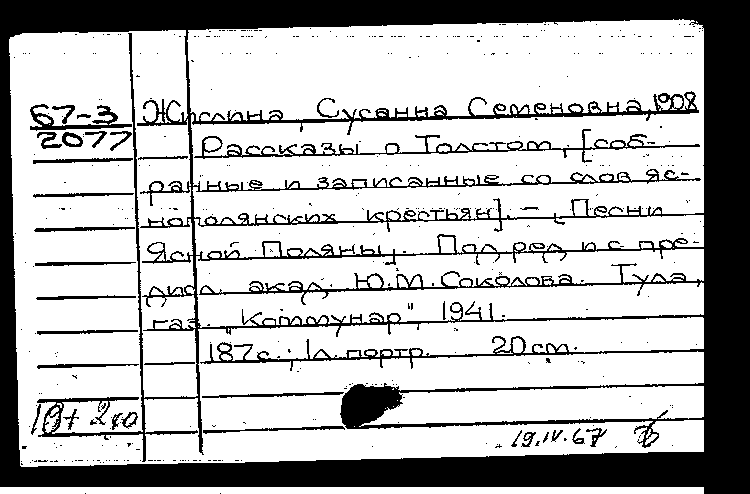 67-3
2077
Жислина, Сусанна Семеновна, 1908
Рассказы о Толстом, [соб-
ранные и записанные со слов яс-
нополянских крестьян]. - [Песни
Ясной Поляны]. Под ред. и с пре-
дисл. акад. Ю.М. Соколова. Тула,
газ. „Коммунар", 1941.
187 с.; 1 л. портр. 20 см.
19.IV.67